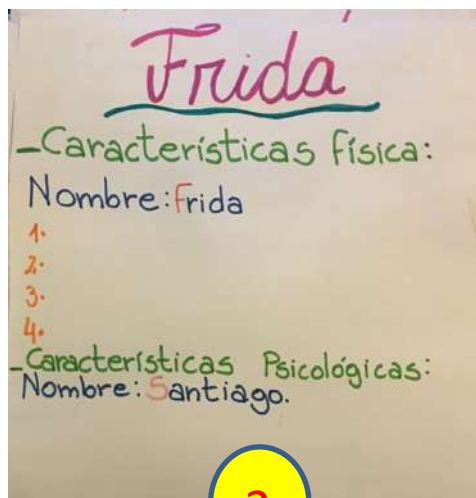 Frida
-Características física:
Nombre: Frida
1.
2.
3.
4.
-Características Psicológicas:
Nombre: Santiago.